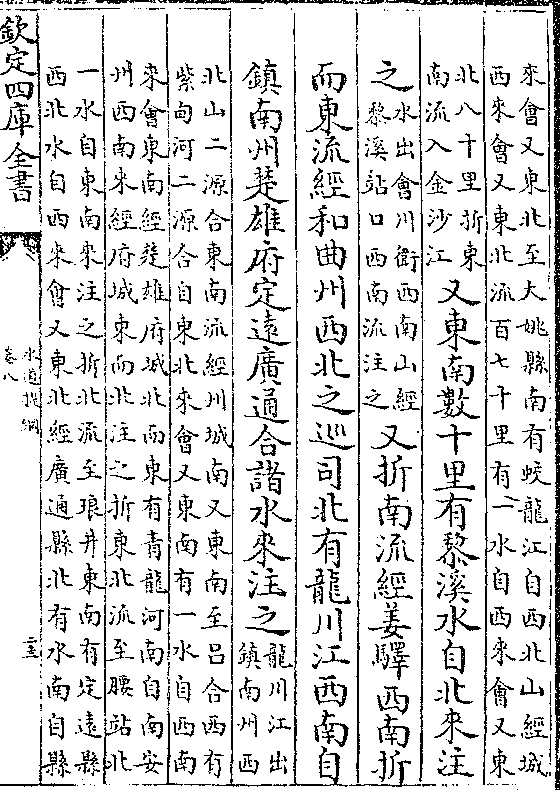 來會又東北至大姚縣南有蛟龍江自西北山經城
西來會又東北流百七十里有一水自西來會又東
北八十里折東
南流入金沙江
又東南數十里有黎溪水自北來注
之
水出會川衛西南山經
黎溪站口西南流注之
又折南流經姜驛西南折
而東流經和曲州西北之巡司北有龍川江西南自
鎮南州楚雄府定遠廣通合諸水來注之
龍川江出
鎮南州西
北山二源合東南流經州城南又東南至呂合西有
紫甸河二源合自東北來會又東南有一水自西南
來會東南經楚雄府城北而東有青龍河南自南安
州西南來經府城東而北注之折東北流至腰站北
一水自東南來注之折北流至琅井東南有定遠縣
西北水自西來會又東北經廣通縣北有水南自縣
欽定四庫全書
水道提綱
卷八